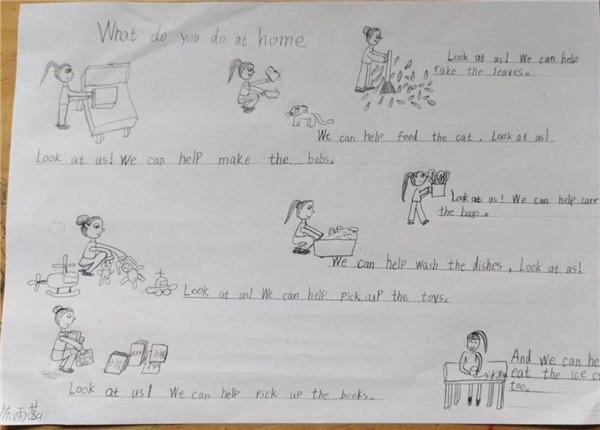 What do you do at home
Look at us! We can help
rake the leaves.
We can help feed the cat, Look at us!
Look at us! We can help make the bebs.
Look at us! We can help carr
the bags.
We can help wash the dishes, Look at us!
Look at us! We can help pick up the toys.
And we can he
eat the ice c
too.
Look at us! We can help pick up the books.